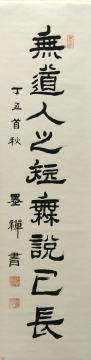 無道人之短無說己長
丁丑首秋
墨禪書